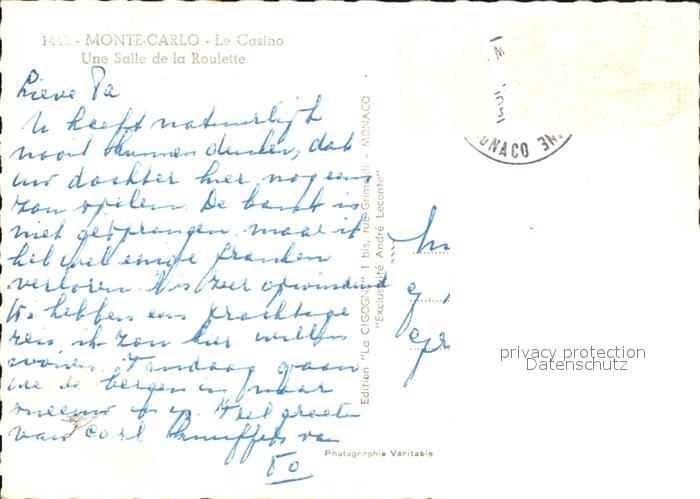 1442 - MONTE-CARLO - Le Casino
Une Salle de la Roulette
Lieve Pa
U heeft natuurlijk
nooit kunnen denken, dat
uw dochter hier nog eens
zou spelen. De bank is
niet gesprongen maar ik
heb wel enige franken
verloren. 't Is zeer opwindend
We hebben een prachtige
reis, ik zou hier willen
wonen. Vandaag gaan
we de bergen in, waar
sneeuw is. Veel groeten
van Carl knuffels van
Edition "La CIGOGNE" 1 bis, rue Grimaldi - MONACO
"Exclusivité André Leconte"
Photographie Véritable
MONACO
privacy protection
Datenschutz